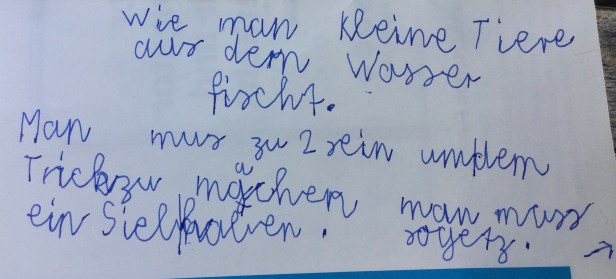 Wie man kleine Tiere
aus dem Wasser
fischt.
Man mus zu 2 sein umdem
Trickzu machen man muss
ein Siel halten.